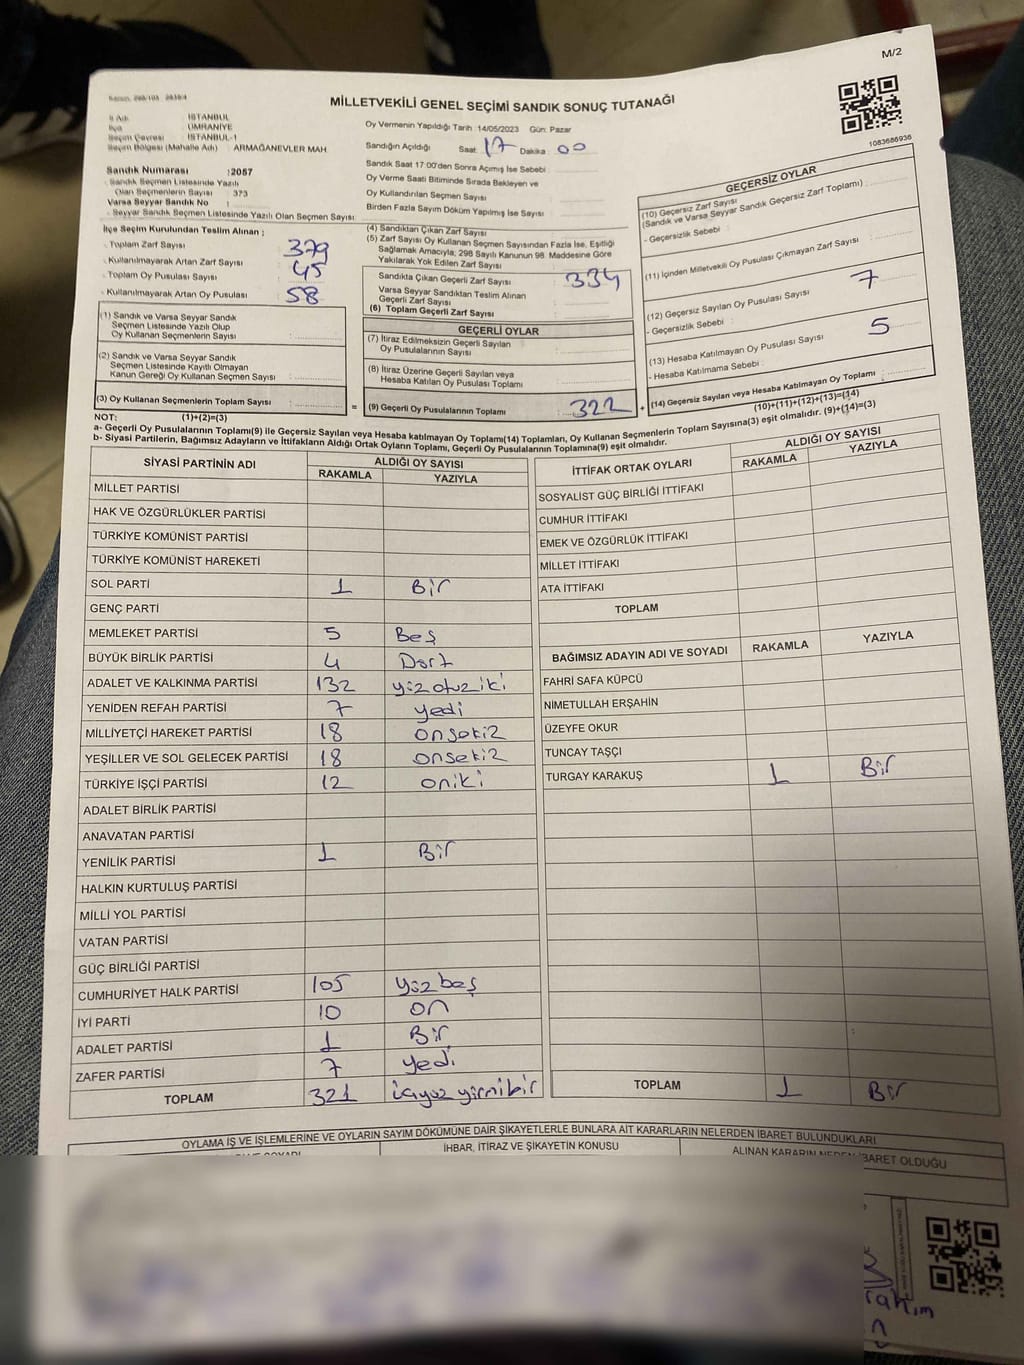 M/2
MİLLETVEKİLİ GENEL SEÇİMİ SANDIK SONUÇ TUTANAĞI
1083686936
İl Adı : İSTANBUL
İlçe : ÜMRANİYE
Seçim Çevresi : İSTANBUL-1
Seçim Bölgesi (Mahalle Adı) : ARMAĞANEVLER MAH.
Sandık Numarası : 2087
Sandık Seçmen Listesinde Yazılı
Olan Seçmenlerin Sayısı : 373
Varsa Seyyar Sandık No :
Seyyar Sandık Seçmen Listesinde Yazılı Olan Seçmen Sayısı :
İlçe Seçim Kurulundan Teslim Alınan ;
- Toplam Zarf Sayısı : 379
- Kullanılmayarak Artan Zarf Sayısı : 45
- Toplam Oy Pusulası Sayısı :
- Kullanılmayarak Artan Oy Pusulası : 58
(1) Sandık ve Varsa Seyyar Sandık
Seçmen Listesinde Yazılı Olup
Oy Kullanan Seçmenlerin Sayısı :
(2) Sandık ve Varsa Seyyar Sandık
Seçmen Listesinde Kayıtlı Olmayan
Kanun Gereği Oy Kullanan Seçmen Sayısı :
(3) Oy Kullanan Seçmenlerin Toplam Sayısı :
Oy Vermenin Yapıldığı Tarih 14/05/2023 Gün: Pazar
Sandığın Açıldığı Saat 17 Dakika 00
Sandık Saat 17.00'den Sonra Açımış İse Sebebi :
Oy Verme Saati Bitiminde Sırada Bekleyen ve
Oy Kullandırılan Seçmen Sayısı :
Birden Fazla Sayım Döküm Yapılmış İse Sayısı :
(4) Sandıktan Çıkan Zarf Sayısı :
(5) Zarf Sayısı Oy Kullanan Seçmen Sayısından Fazla İse, Eşitliği
Sağlamak Amacıyla; 298 Sayılı Kanunun 98. Maddesine Göre
Yakılarak Yok Edilen Zarf Sayısı :
Sandıkta Çıkan Geçerli Zarf Sayısı : 334
Varsa Seyyar Sandıktan Teslim Alınan
Geçerli Zarf Sayısı :
(6) Toplam Geçerli Zarf Sayısı :
GEÇERLİ OYLAR
(7) İtiraz Edilmeksizin Geçerli Sayılan
Oy Pusulalarının Sayısı :
(8) İtiraz Üzerine Geçerli Sayılan veya
Hesaba Katılan Oy Pusulası Toplamı :
= (9) Geçerli Oy Pusulalarının Toplamı : 322 +
GEÇERSİZ OYLAR
(10) Geçersiz Zarf Sayısı
(Sandık ve Varsa Seyyar Sandık Geçersiz Zarf Toplamı) :
- Geçersizlik Sebebi :
(11) İçinden Milletvekili Oy Pusulası Çıkmayan Zarf Sayısı :
(12) Geçersiz Sayılan Oy Pusulası Sayısı : 7
- Geçersizlik Sebebi :
(13) Hesaba Katılmayan Oy Pusulası Sayısı : 5
- Hesaba Katılmama Sebebi :
(14) Geçersiz Sayılan veya Hesaba Katılmayan Oy Toplamı :
(10)+(11)+(12)+(13)=(14)
NOT: (1)+(2)=(3)
a- Geçerli Oy Pusulalarının Toplamı(9) ile Geçersiz Sayılan veya Hesaba katılmayan Oy Toplamı(14) Toplamları, Oy Kullanan Seçmenlerin Toplam Sayısına(3) eşit olmalıdır. (9)+(14)=(3)
b- Siyasi Partilerin, Bağımsız Adayların ve İttifakların Aldığı Ortak Oyların Toplamı, Geçerli Oy Pusulalarının Toplamına(9) eşit olmalıdır.
SİYASİ PARTİNİN ADI ALDIĞI OY SAYISI
RAKAMLA YAZIYLA
MİLLET PARTİSİ
HAK VE ÖZGÜRLÜKLER PARTİSİ
TÜRKİYE KOMÜNİST PARTİSİ
TÜRKİYE KOMÜNİST HAREKETİ
SOL PARTİ 1 Bir
GENÇ PARTİ
MEMLEKET PARTİSİ 5 Beş
BÜYÜK BİRLİK PARTİSİ 4 Dört
ADALET VE KALKINMA PARTİSİ 132 yüzotuziki
YENİDEN REFAH PARTİSİ 7 yedi
MİLLİYETÇİ HAREKET PARTİSİ 18 onsekiz
YEŞİLLER VE SOL GELECEK PARTİSİ 18 onsekiz
TÜRKİYE İŞÇİ PARTİSİ 12 oniki
ADALET BİRLİK PARTİSİ
ANAVATAN PARTİSİ
YENİLİK PARTİSİ 1 Bir
HALKIN KURTULUŞ PARTİSİ
MİLLİ YOL PARTİSİ
VATAN PARTİSİ
GÜÇ BİRLİĞİ PARTİSİ
CUMHURİYET HALK PARTİSİ 105 yüzbeş
İYİ PARTİ 10 on
ADALET PARTİSİ 1 Bir
ZAFER PARTİSİ 7 yedi
TOPLAM 321 üçyüz yirmibir
İTTİFAK ORTAK OYLARI ALDIĞI OY SAYISI
RAKAMLA YAZIYLA
SOSYALİST GÜÇ BİRLİĞİ İTTİFAKI
CUMHUR İTTİFAKI
EMEK VE ÖZGÜRLÜK İTTİFAKI
MİLLET İTTİFAKI
ATA İTTİFAKI
TOPLAM
BAĞIMSIZ ADAYIN ADI VE SOYADI RAKAMLA YAZIYLA
FAHRİ SAFA KÜPCÜ
NİMETULLAH ERŞAHİN
ÜZEYFE OKUR
TUNCAY TAŞÇI
TURGAY KARAKUŞ 1 Bir
TOPLAM 1 Bir
OYLAMA İŞ VE İŞLEMLERİNE VE OYLARIN SAYIM DÖKÜMÜNE DAİR ŞİKAYETLERLE BUNLARA AİT KARARLARIN NELERDEN İBARET BULUNDUKLARI
İHBAR, İTİRAZ VE ŞİKAYETİN KONUSU
ALINAN KARARIN NEDEN İBARET OLDUĞU